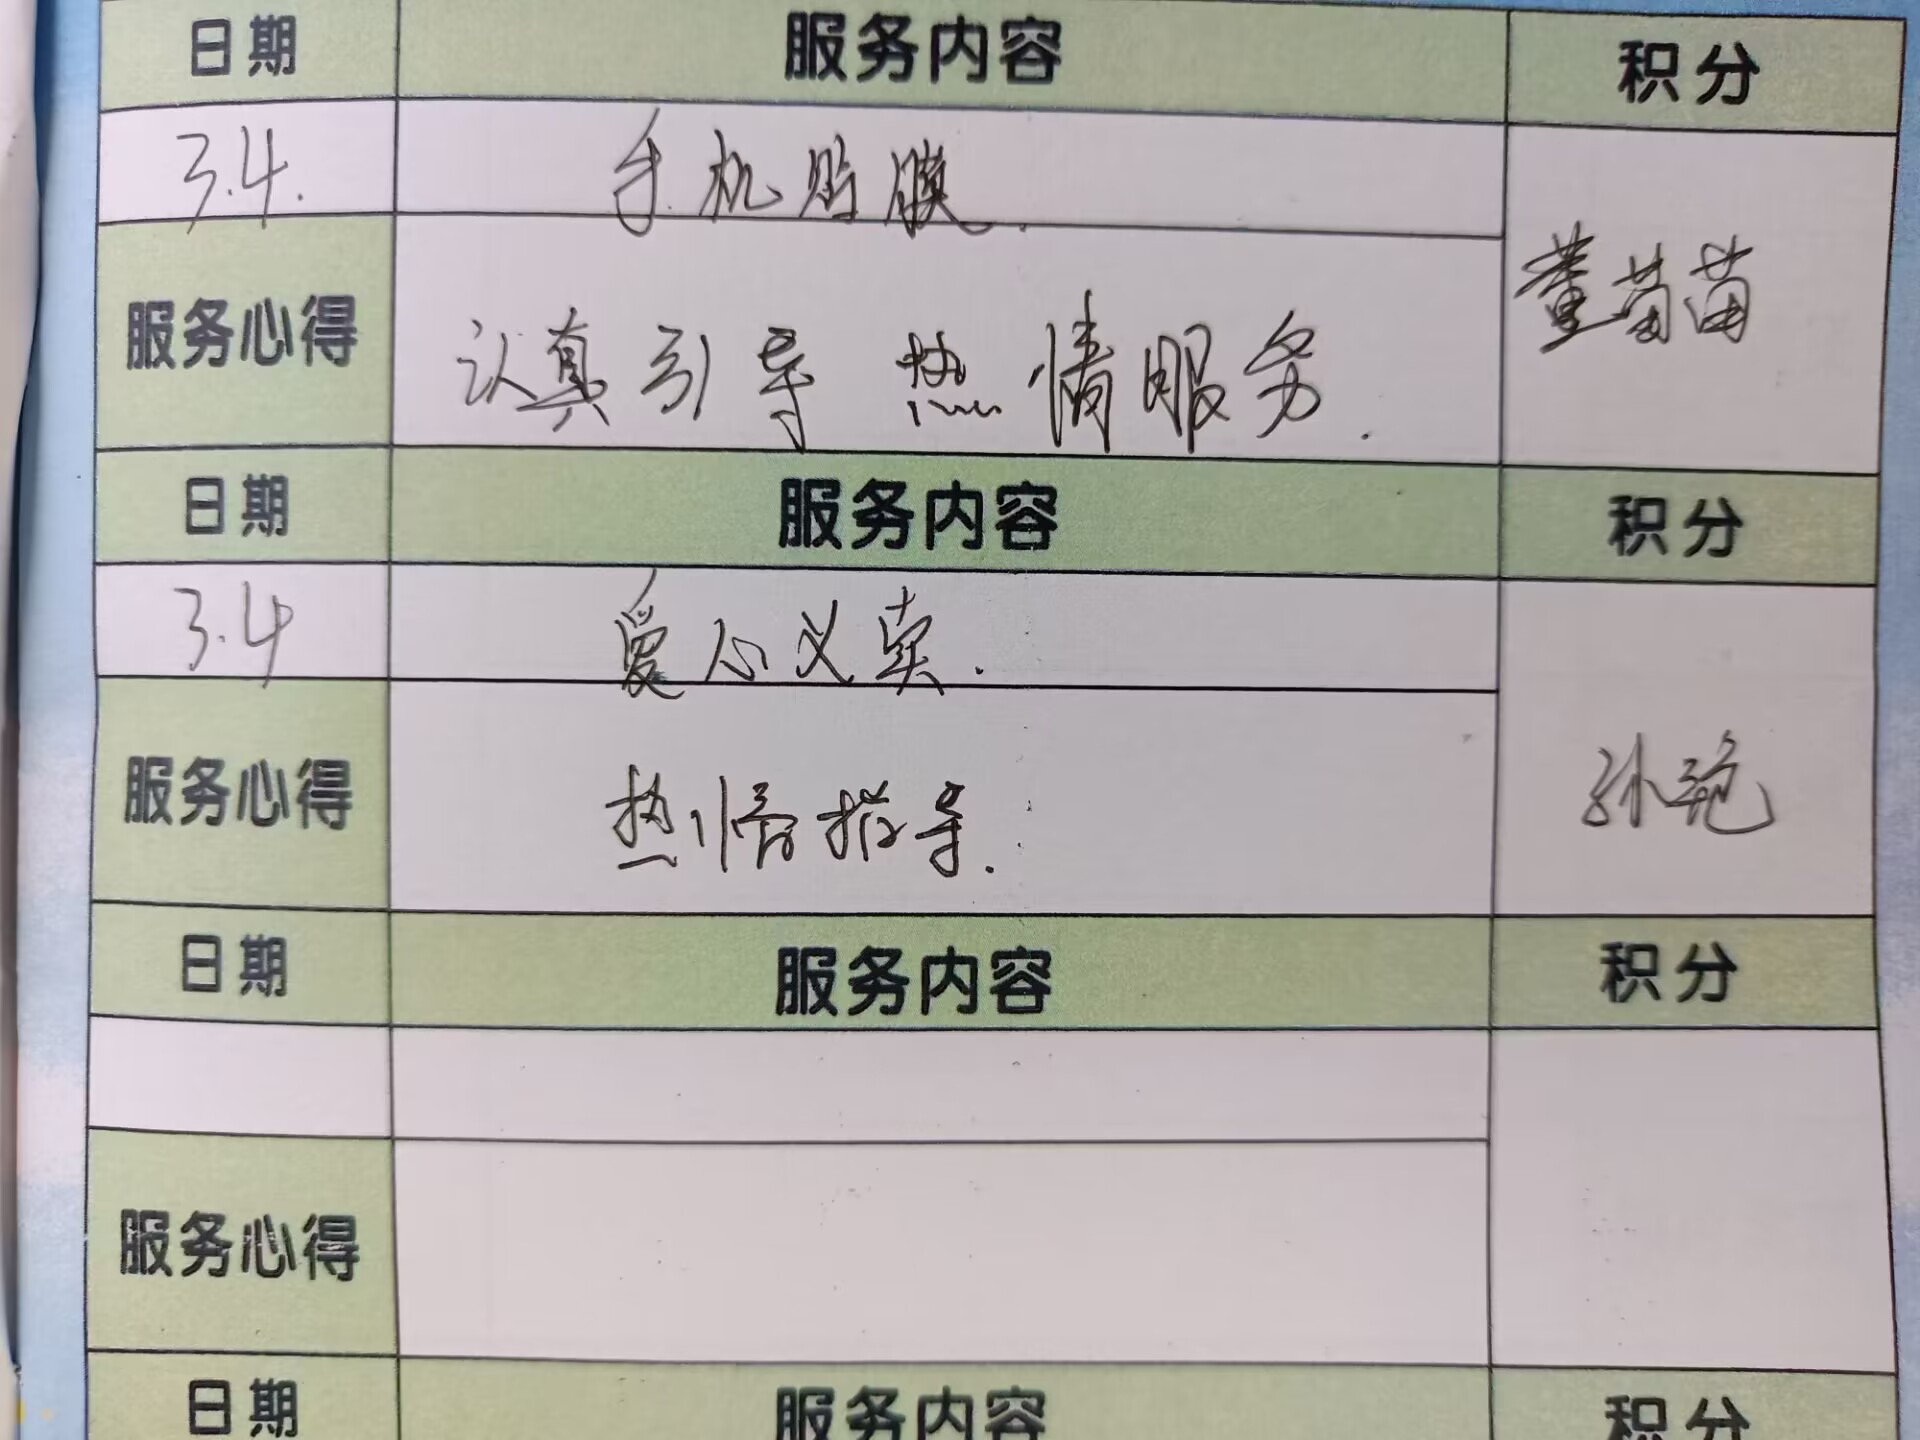 日期 服务内容 积分
3.4. 手机贴膜.
董苗苗
服务心得 认真引导 热情服务.
日期 服务内容 积分
3.4 爱心义卖.
服务心得 热情指导. 孙艳
日期 服务内容 积分
服务心得
日期 服务内容 积分